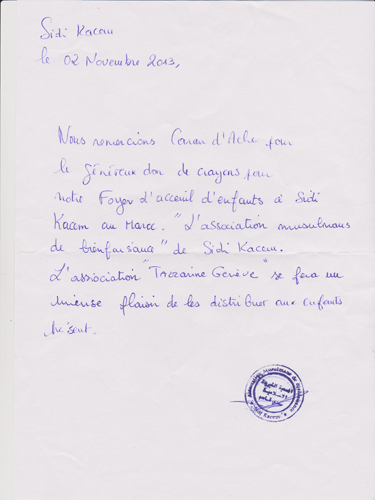 Sidi Kacem
le 02 Novembre 2013,
Nous remercions Caran d'Ache pour
le généreux don de crayons pour
notre Foyer d'acceuil d'enfants à Sidi
Kacem au Maroc. "L'association musulmans
de bienfaisance" de Sidi Kacem.
L'association "Tazarine Genève" se fera un
plaisir de les distribuer aux enfants